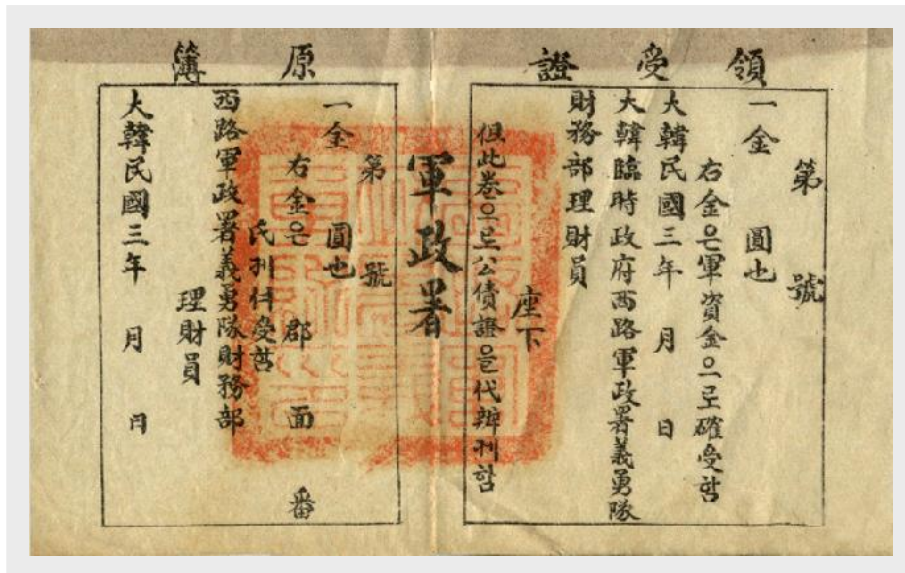 領受證
第 號
一金 圓也
右金은軍資金으로確受함
大韓民國三年 月 日
大韓臨時政府西路軍政署義勇隊
財務部理財員
座下
但此卷으로公債證을代辦 함
軍政署
原簿
第 號
一金 圓也
右金은 郡 面 番
氏 付受함
西路軍政署義勇隊財務部
理財員
大韓民國三年 月 日